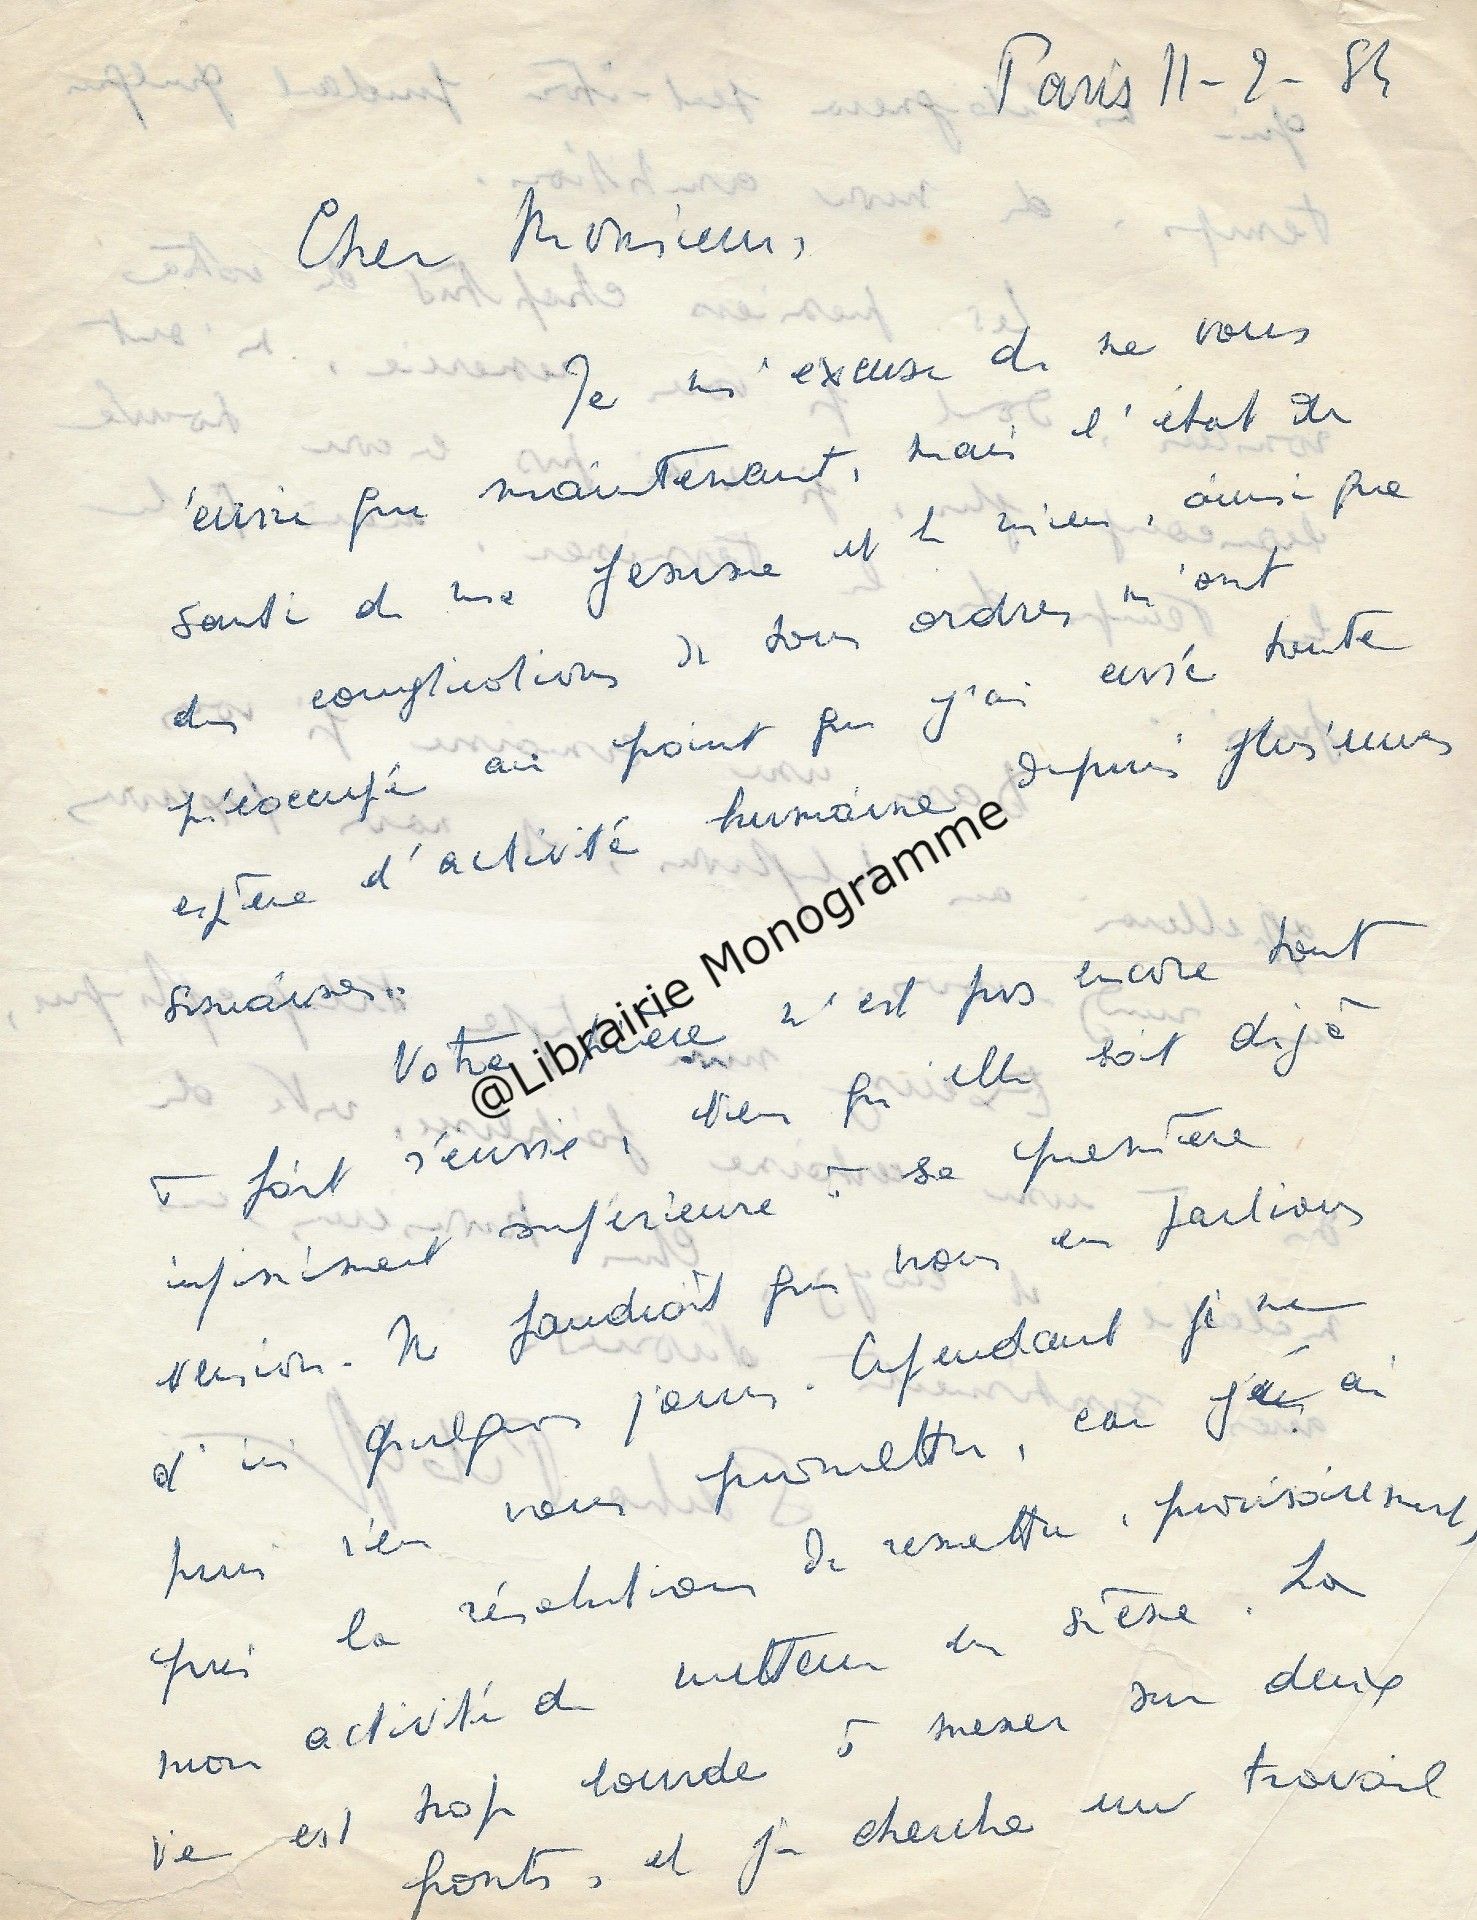 Paris 11-2-54
Cher Monsieur,
Je m'excuse de ne vous
écrire que maintenant, mais l'état de
santé de ma femme et le mien, ainsi que
des complications de tous ordres m'ont
préoccupé au point que j'ai cessé toute
espèce d'activité humaine depuis plusieurs
semaines.
Votre pièce n'est pas encore tout
à fait réussie, bien qu'elle soit déjà
infiniment supérieure à sa première
version. Il faudrait que nous en parlions
d'ici quelques jours. Cependant je ne
puis rien vous promettre, car j'ai
pris la résolution de remettre, provisoirement,
mon activité de metteur en scène. La
vie est trop lourde à mener sur deux
fronts, et je cherche un travail
@Librairie Monogramme